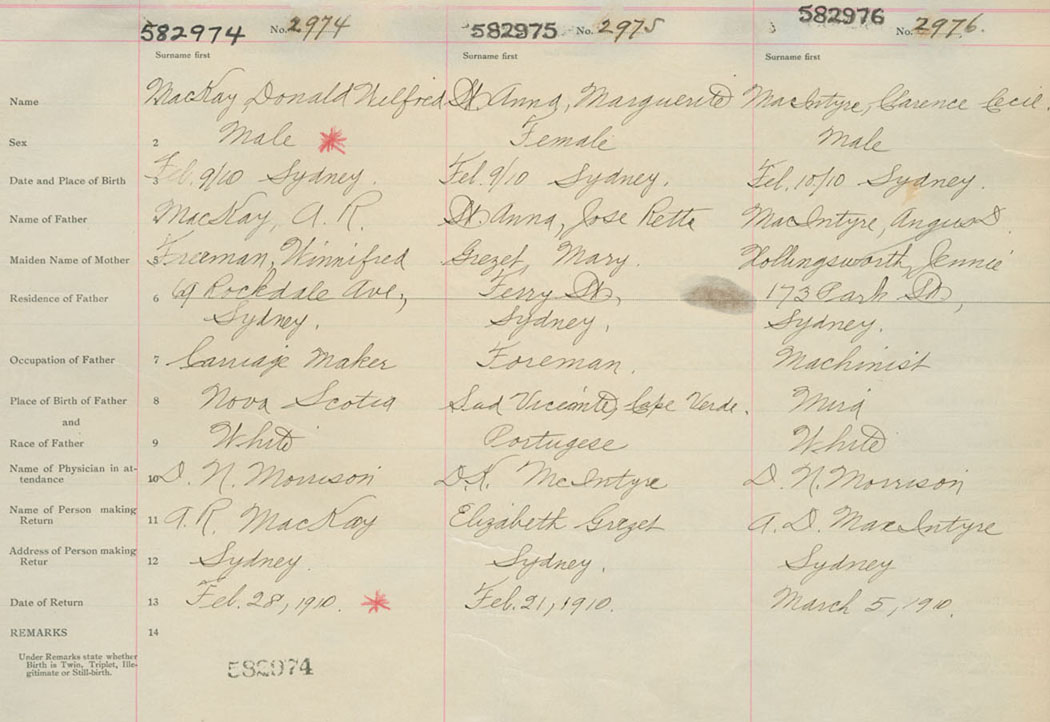 582974 No. 2974 582975 No. 2975 582976 No. 2976.
Surname first Surname first Surname first
Name MacKay, Donald Wilfred St. Anna, Marguerite MacIntyre, Clarence Cecil.
Sex 2 Male Female Male
Date and Place of Birth 3 Feb. 9/10 Sydney. Feb. 9/10 Sydney. Feb. 10/10 Sydney.
Name of Father MacKay, A. R. St. Anna, Jose Retta MacIntyre, Angus D.
Maiden Name of Mother 5 Freeman, Winnifred Grezet, Mary. Hollingsworth, Jennie
Residence of Father 6 69 Rockdale Ave., Ferry St., 173 Park St.,
Sydney. Sydney. Sydney.
Occupation of Father 7 Carriage Maker Foreman. Machinist
Place of Birth of Father 8 Nova Scotia Sad Viciente, Cape Verde. Mira
and
Race of Father 9 White Portugese White
Name of Physician in at-
tendance 10 D. N. Morrison D.K. McIntyre D. N. Morrison
Name of Person making
Return 11 A. R. MacKay Elizabeth Grezet A. D. MacIntyre
Address of Person making
Retur 12 Sydney. Sydney. Sydney
Date of Return 13 Feb. 28, 1910. Feb. 21, 1910. March 5, 1910.
REMARKS 14
Under Remarks state whether
Birth is Twin, Triplet, Ille-
gitimate or Still-birth.
582974